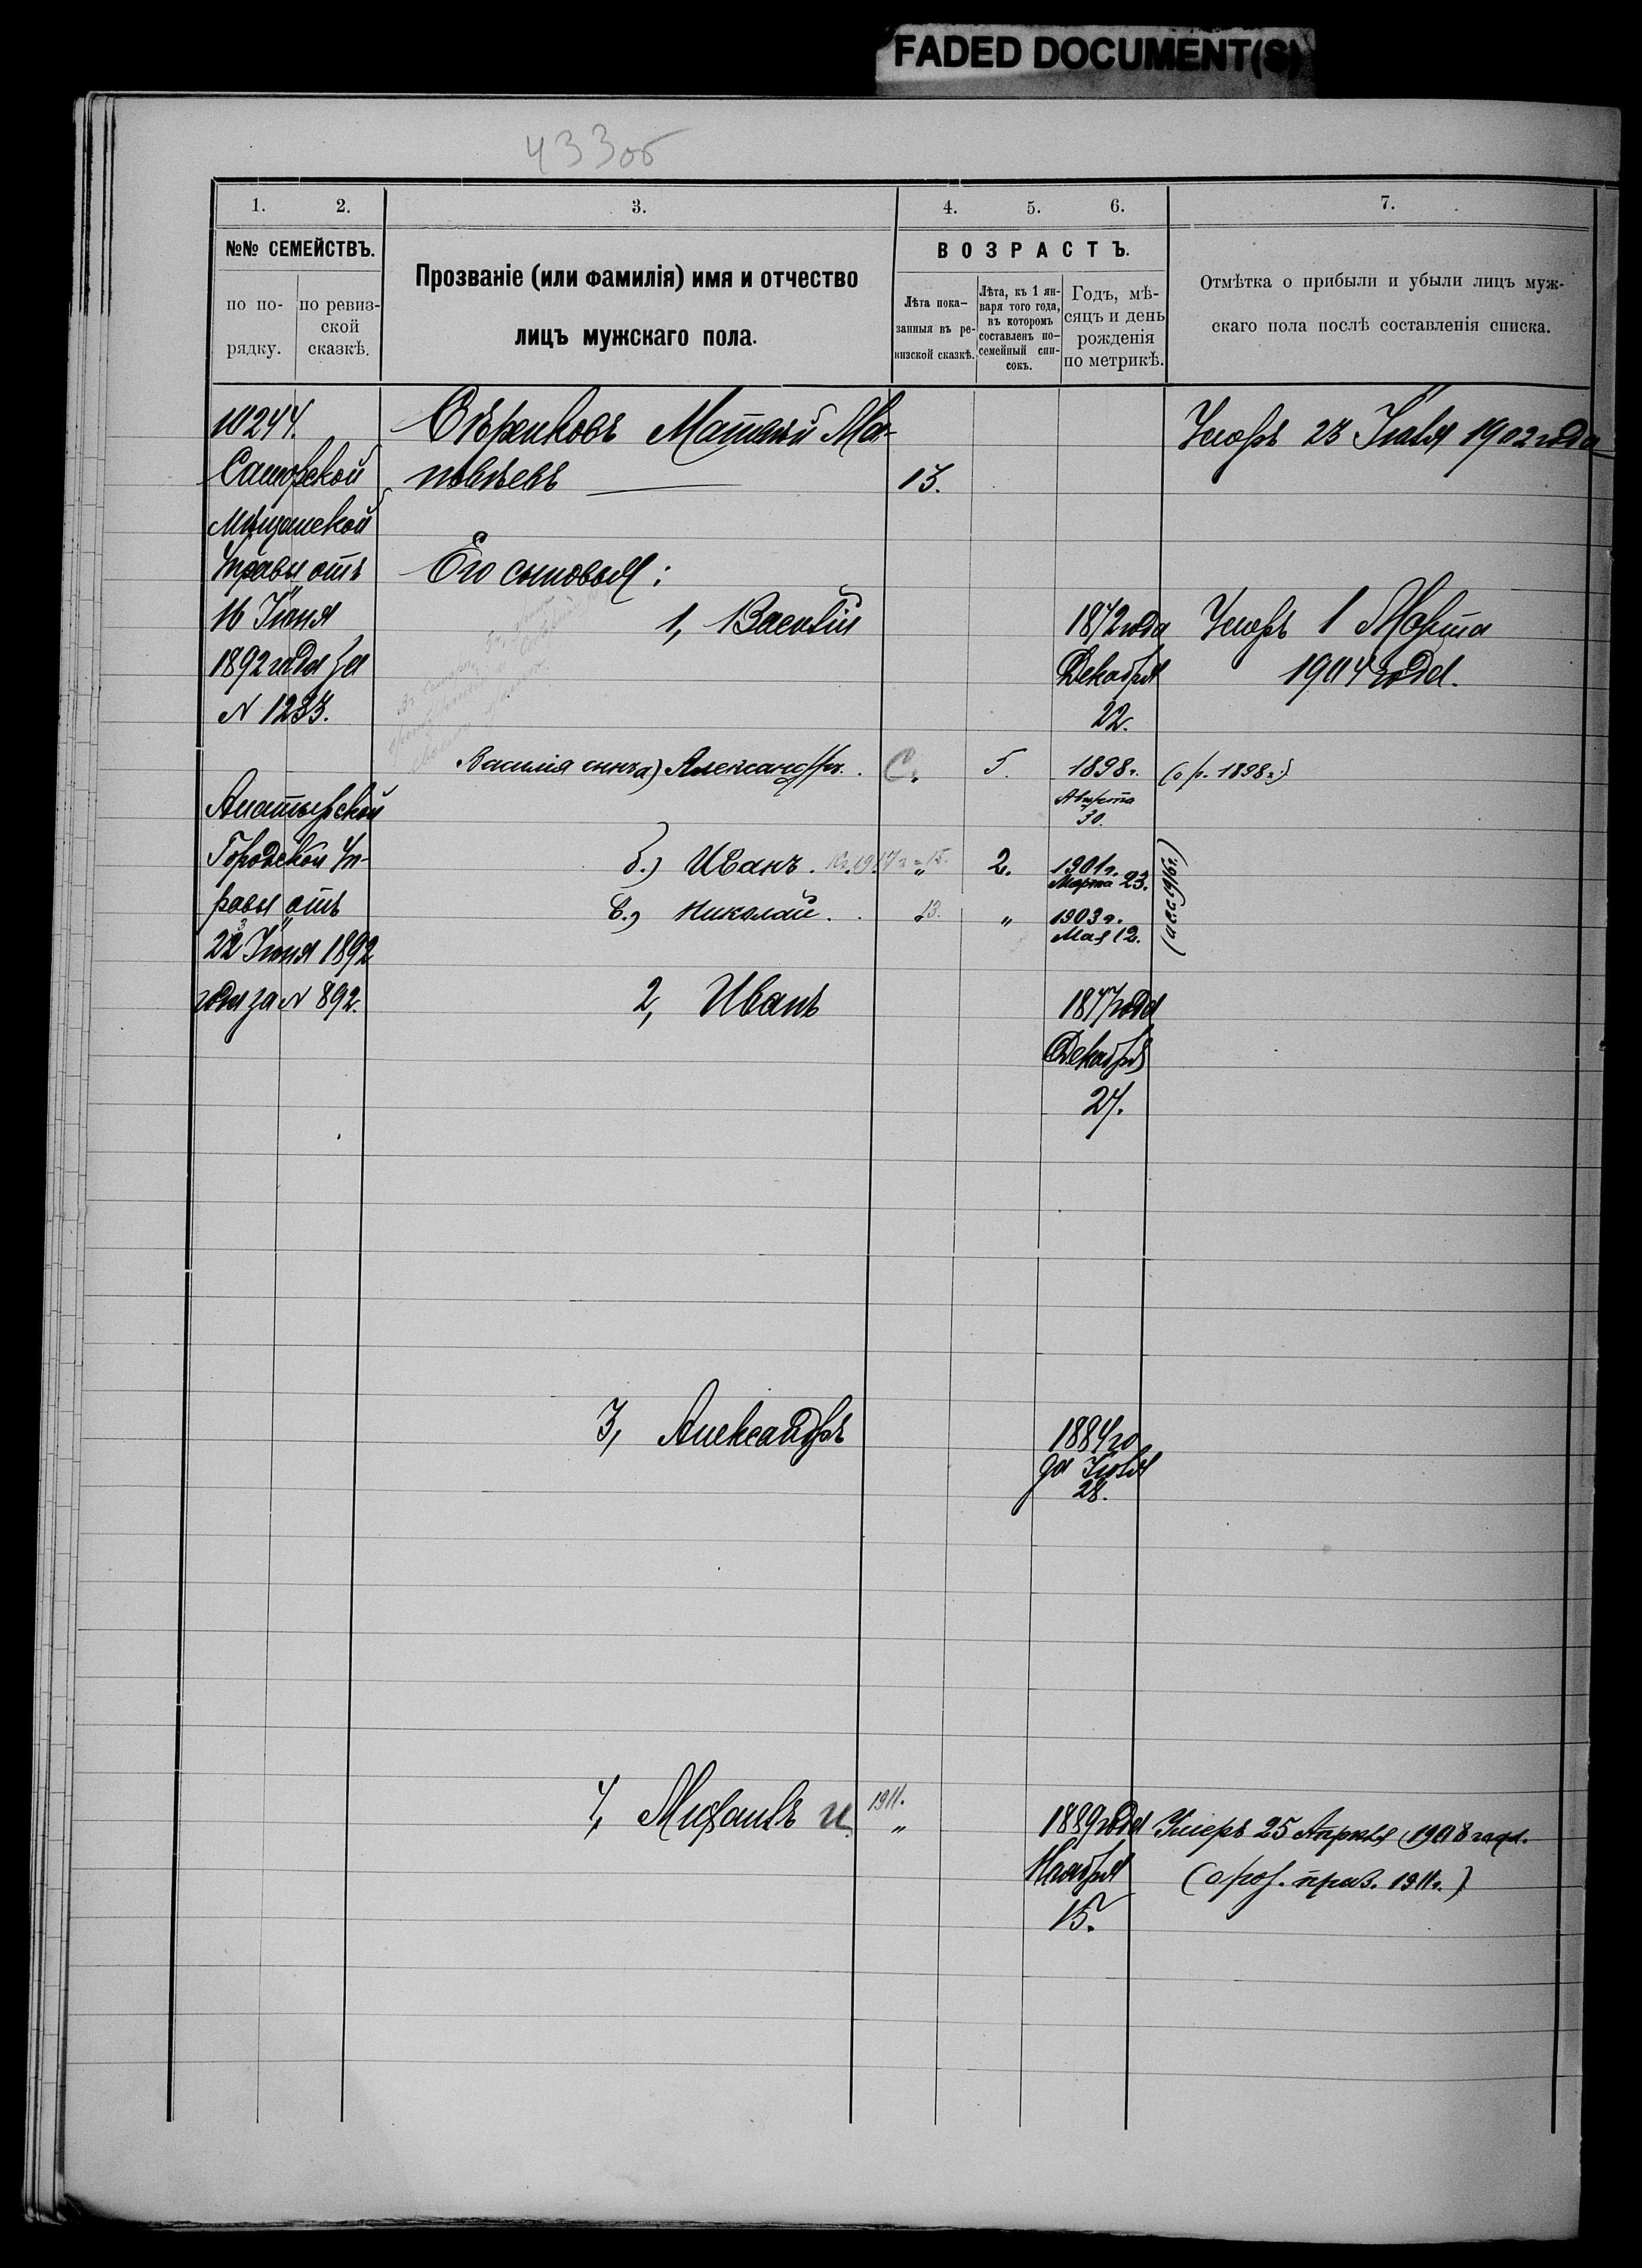 FADED DOCUMENT(S)
433об
1. 2. 3. 4. 5. 6. 7.
№№ СЕМЕЙСТВЪ.
по по-
рядку.
по ревиз-
ской
сказкѣ.
Прозваніе (или фамилія) имя и отчество
лицъ мужскаго пола.
ВОЗРАСТЪ.
Лѣта пока-
занныя въ ре-
визской сказкѣ.
Лѣта, къ 1 ян-
варя того года,
въ которомъ
составленъ по-
семейный спи-
сокъ.
Годъ, мѣ-
сяцъ и день
рожденія
по метрикѣ.
Отмѣтка о прибыли и убыли лицъ муж-
скаго пола послѣ составленія списка.
10244.
Самарской
Мѣщанской
Управы отъ
16 Іюня
1892 года за
N 1233.
Алатырской
Городской Уп-
равы отъ
22 Іюня 1892
года за N 892.
Матвѣй Мат-
вѣевъ
13.
Умеръ 23 Іюля 1902 года
Его сыновья:
1, Василій
1872 года
Декабря
22.
Умеръ 1 Марта
1904 года.
Василія сынъ а) Александръ.
С.
5.
1898 г.
Августа
30.
(о р. 1898 г.)
б.) Иванъ.
2.
1901 г.
Марта 23.
в.) Николай.
13.
"
1903 г.
Мая 12.
2, Иванъ
1877 года
Декабря
27.
3, Александръ
1884 го
да Іюля
28.
4, Михаилъ
1911.
"
1889 года
Ноября
15.
Умеръ 25 Апрѣля 1908 года.
(о роз. приз. 1911 г.)